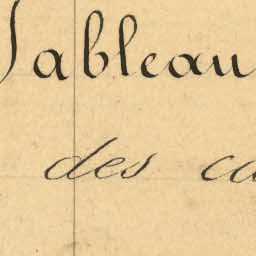 Tableau
des ca